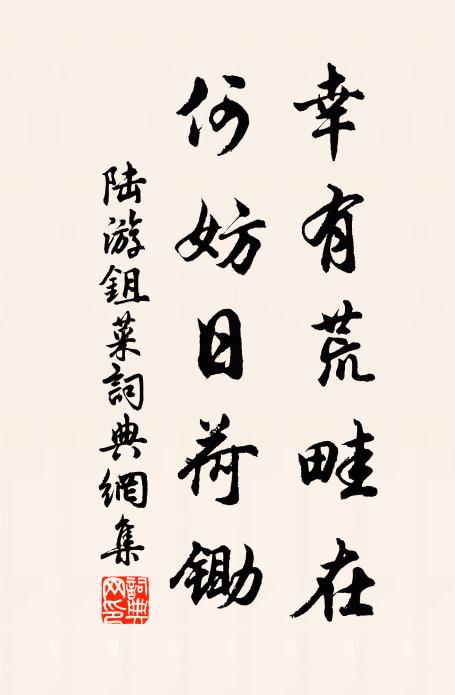 幸有荒畦在
何妨日荷鋤
陆游鉏菜詞典網集
詞典網印